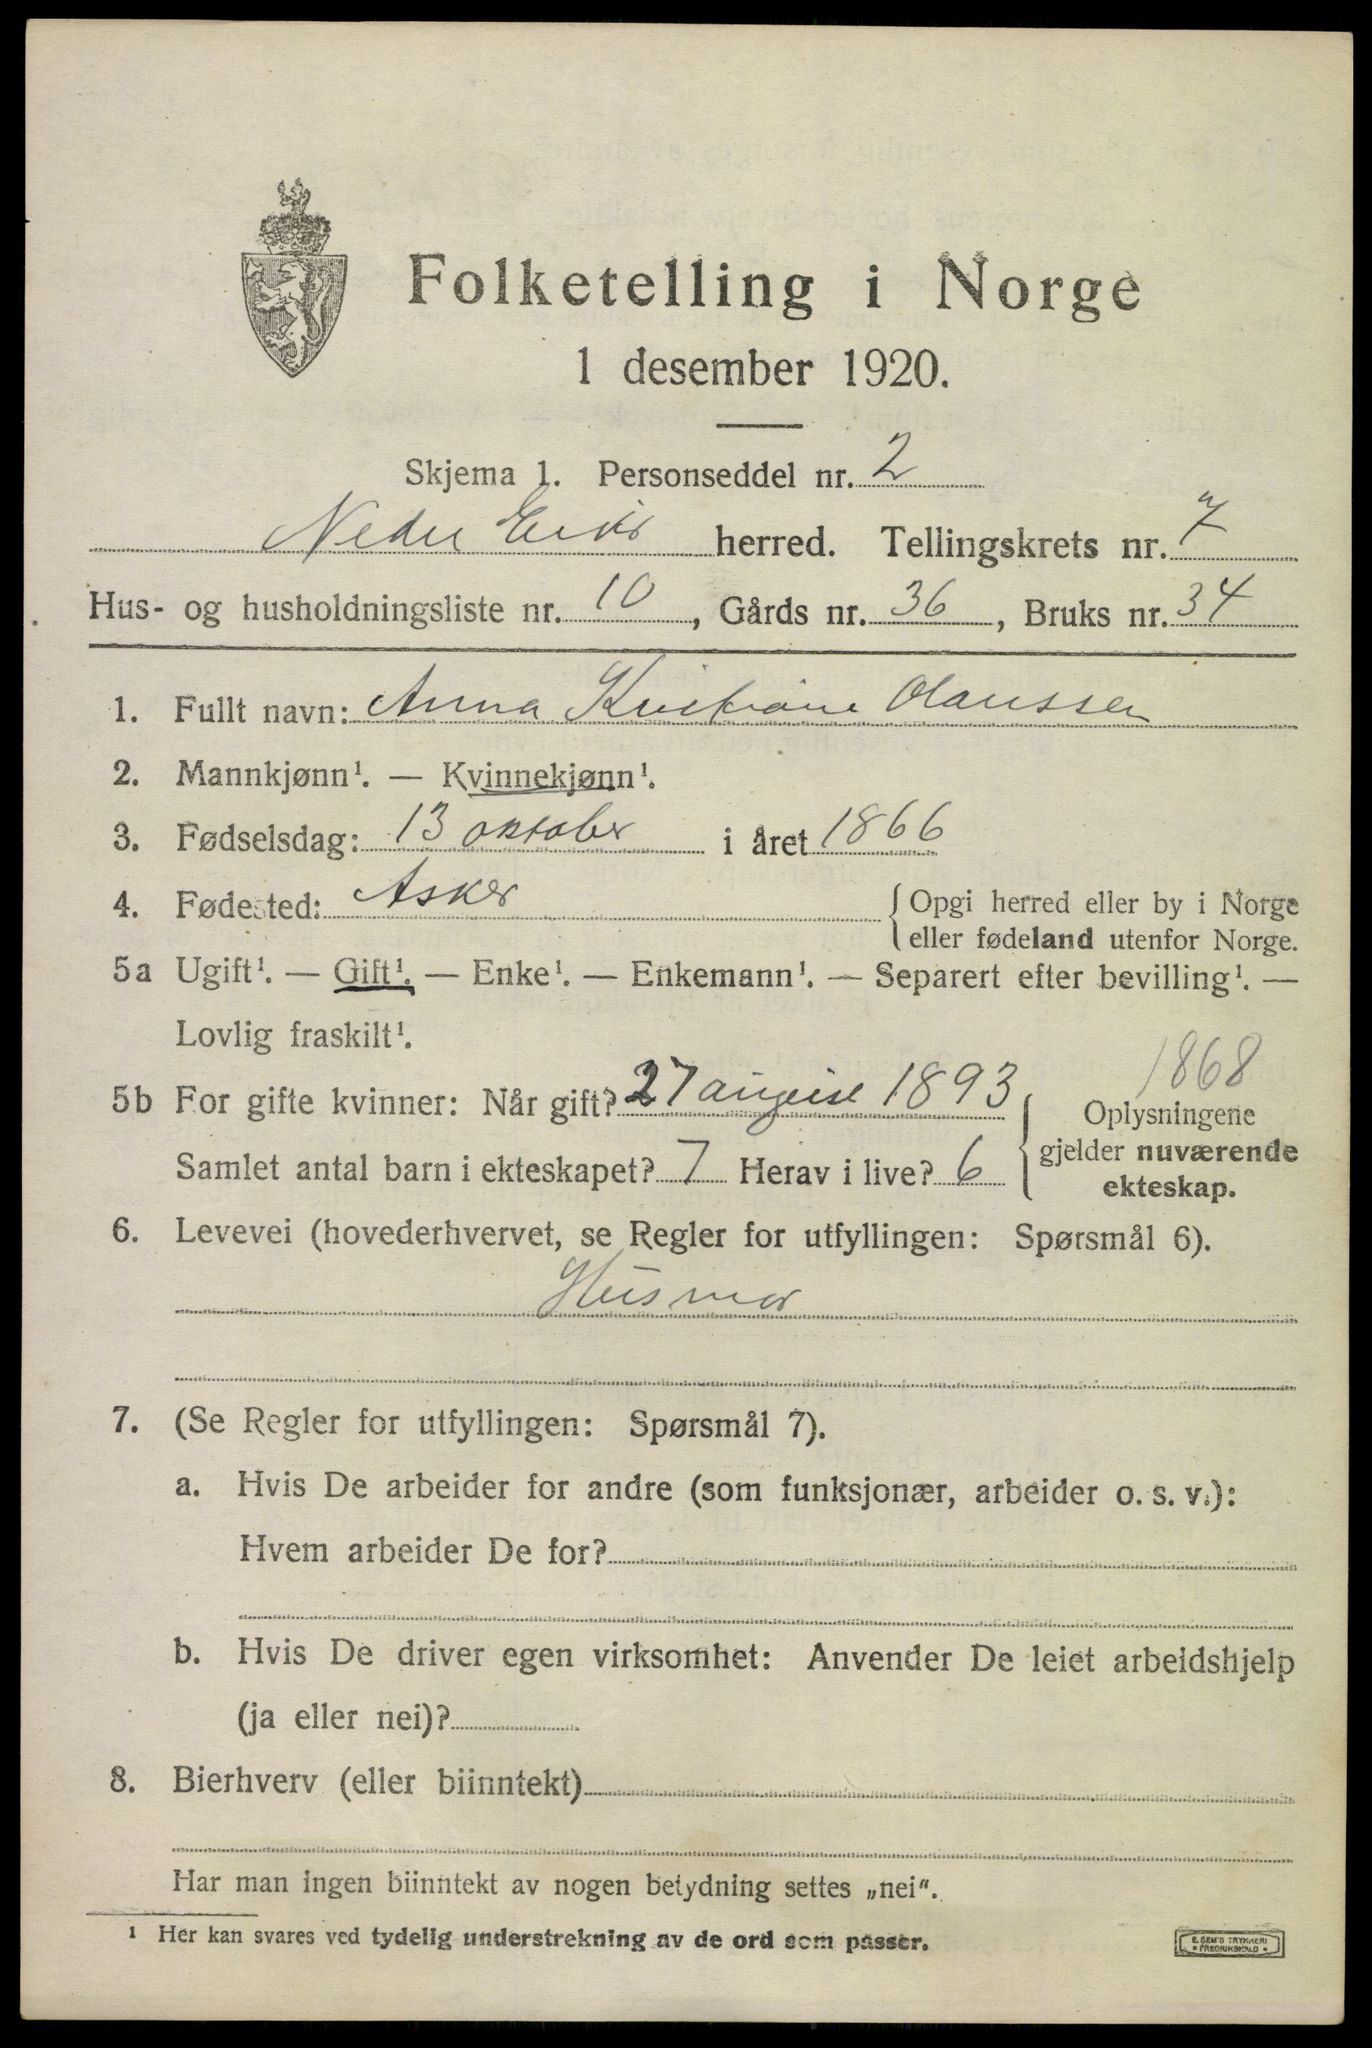 Folketelling i Norge
1 desember 1920.
Skjema 1. Personseddel nr. 2
Neder Eiker herred. Tellingskrets nr. 7
Hus- og husholdningsliste nr. 10, Gårds nr. 36, Bruks nr. 34
1. Fullt navn: Anna Kristiane Olaussen
2. Mannkjønn¹. — Kvinnekjønn¹.
3. Fødselsdag: 13 oktober i året 1866
4. Fødested: Asker { Opgi herred eller by i Norge
eller fødeland utenfor Norge.
5a Ugift¹. — Gift¹. — Enke¹. — Enkemann¹. — Separert efter bevilling¹. —
Lovlig fraskilt¹.
1868
5b For gifte kvinner: Når gift? 27 august 1893 { Oplysningene
gjelder nuværende
Samlet antal barn i ekteskapet? 7 Herav i live? 6
ekteskap.
6. Levevei (hovederhvervet, se Regler for utfyllingen: Spørsmål 6).
Husmor
7. (Se Regler for utfyllingen: Spørsmål 7).
a. Hvis De arbeider for andre (som funksjonær, arbeider o. s. v.):
Hvem arbeider De for?
b. Hvis De driver egen virksomhet: Anvender De leiet arbeidshjelp
(ja eller nei)?
8. Bierhverv (eller biinntekt)
Har man ingen biinntekt av nogen betydning settes „nei“.
¹ Her kan svares ved tydelig understrekning av de ord som passer.
E. SEM'S TRYKKERI
FREDRIKSHALD